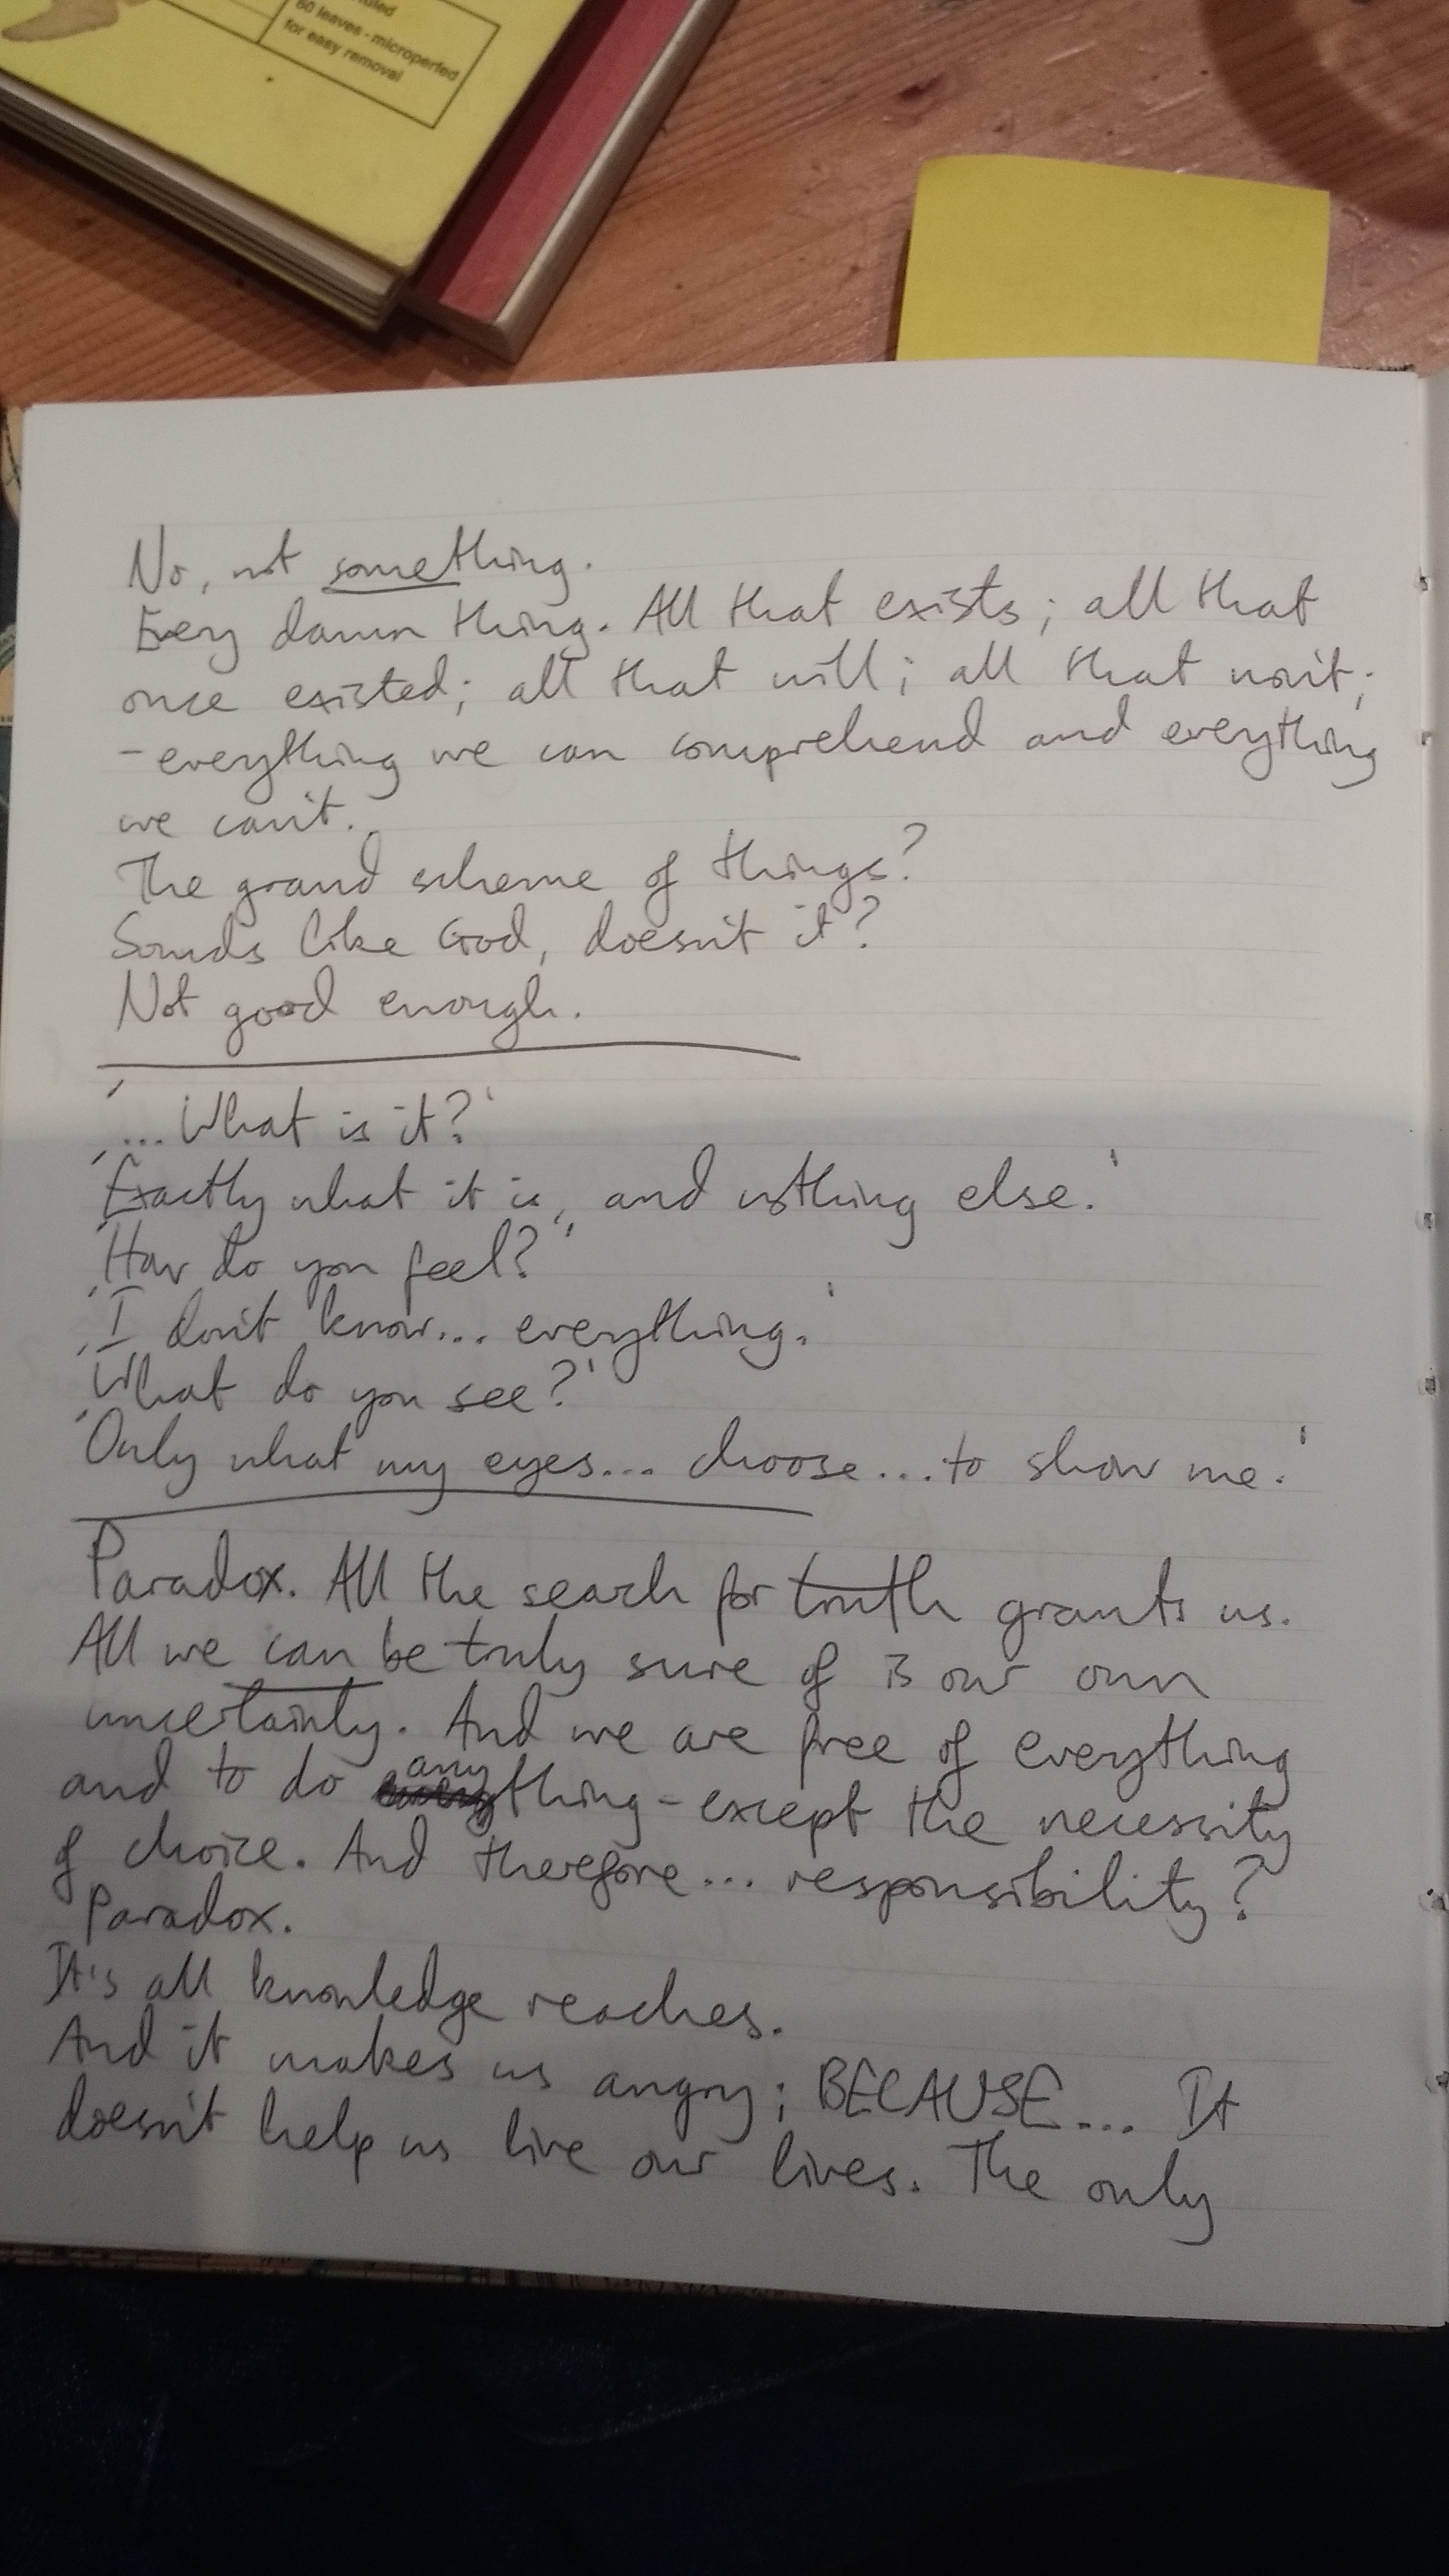 ruled
60 leaves - microperfed
for easy removal
No, not something.
Every damn thing. All that exists; all that
once existed; all that will; all that won't;
- everything we can comprehend and everything
we can't.
The grand scheme of things?
Sounds like God, doesn't it?
Not good enough.
'...What is it?'
'Exactly what it is, and nothing else.'
'How do you feel?'
'I don't know... everything.'
'What do you see?'
'Only what my eyes... choose... to show me.'
Paradox. All the search for truth grants us.
All we can be truly sure of is our own
uncertainty. And we are free of everything
and to do anything - except the necessity
of choice. And therefore... responsibility?
Paradox.
It's all knowledge reaches.
And it makes us angry; BECAUSE... It
doesn't help us live our lives. The only